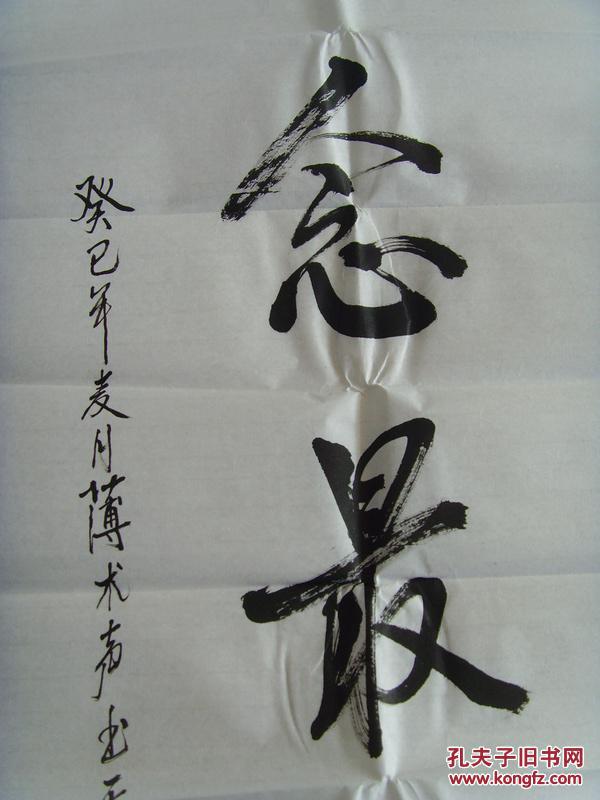 念最
癸巳年麦月薄术声书于
孔夫子旧书网
www.kongfz.com